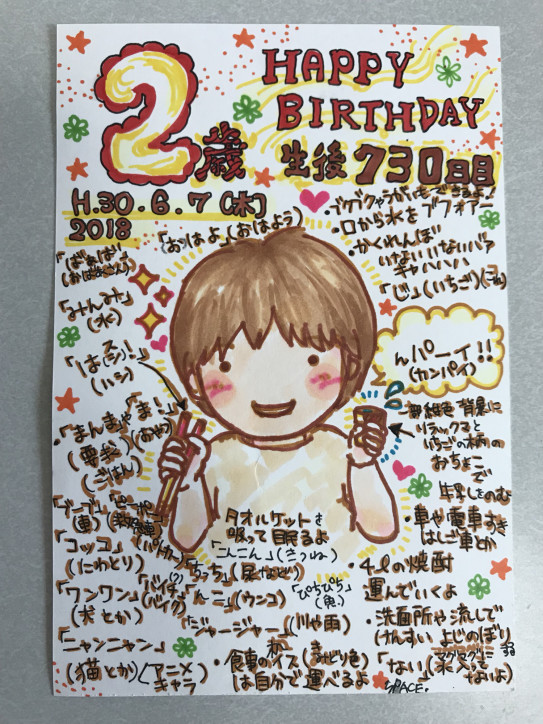 2歳
HAPPY
BIRTHDAY
生後730日目
H.30.6.7(木)
2018
「おはよ」(おはよう)
・口から水をブフォアー
・かくれんぼ
いない いない バァ
キャハハハ
「じ」(いちご)
「ばぁば」
(おばあちゃん)
「みんみ」
(水)
「はシ!」
(ハシ)
んパーイ!!
(カンパイ)
背景に
リラックマと
いちごの柄の
おちょこ
で
牛乳をのむ
・「まんま」
(ごはん)
「ブーブ」
(車)
「コッコ」
(にわとり)
「ワンワン」
(犬とか)
「ニャンニャン」
(猫とか)
(アニメ
キャラ)
(パトカー)
(バイク)
タオルケットを
吸って眠るよ
「こんこん」(きつね)
「ちっち」(尿など)
「んこ」(ウンコ)
「ぴちぴち」
(魚)
「ジャージャー」(川や雨)
・食事のイス(きみどり色)
は自分で運べるよ
・車や電車すき
はしご車とか
・4ℓの焼酎
運んでいくよ
・洗面所や流しで
けんすい よじのぼり
「ない」
ないよ)
SPACE.